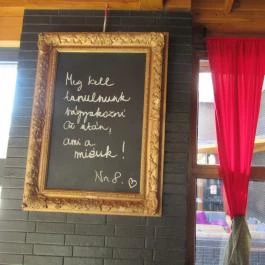 Meg kell
tanulnunk
vágyakozni
az után,
ami a
miénk!
Nr. 8. ♡